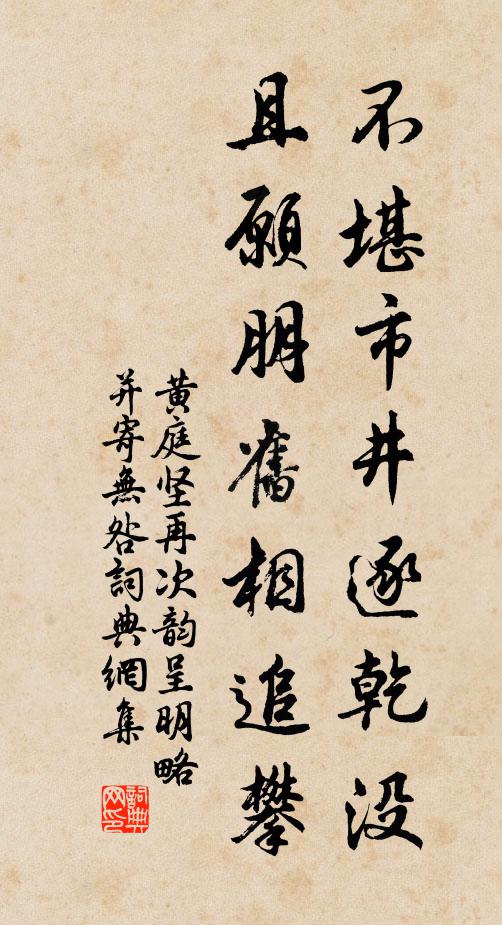 不堪市井逐乾没
且願朋舊相追攀
黄庭坚再次韵呈明略
并寄無咎詞典網集
詞典网印